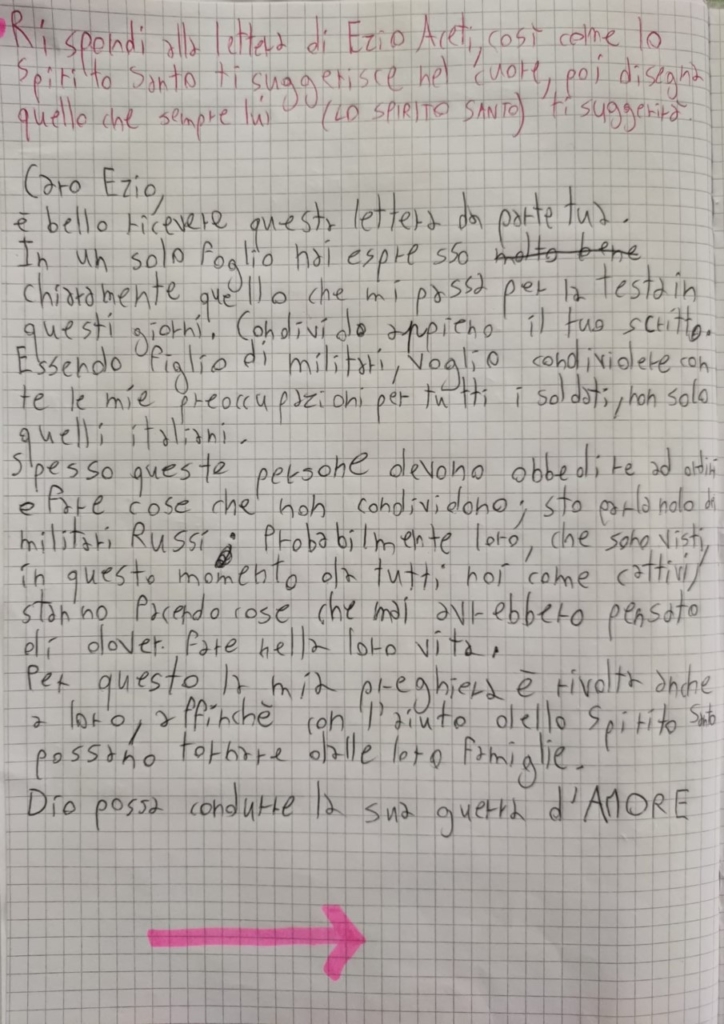 Rispondi alla lettera di Ezio Aceti, così come lo
Spirito Santo ti suggerisce nel cuore, poi disegna
quello che sempre lui (LO SPIRITO SANTO) ti suggerirà.
Caro Ezio,
è bello ricevere questa lettera da parte tua.
In un solo foglio hai espresso molto bene
chiaramente quello che mi passa per la testa in
questi giorni. Condivido appieno il tuo scritto.
Essendo figlio di militari, voglio condividere con
te le mie preoccupazioni per tutti i soldati, non solo
quelli italiani.
Spesso queste persone devono obbedire ad ordini
e fare cose che non condividono; sto parlando di
militari Russi; Probabilmente loro, che sono visti,
in questo momento da tutti noi come cattivi,
stanno facendo cose che mai avrebbero pensato
di dover fare nella loro vita.
Per questo la mia preghiera è rivolta anche
a loro, affinchè con l'aiuto dello Spirito Santo
possano tornare dalle loro famiglie.
Dio possa condurre la sua guerra d'AMORE